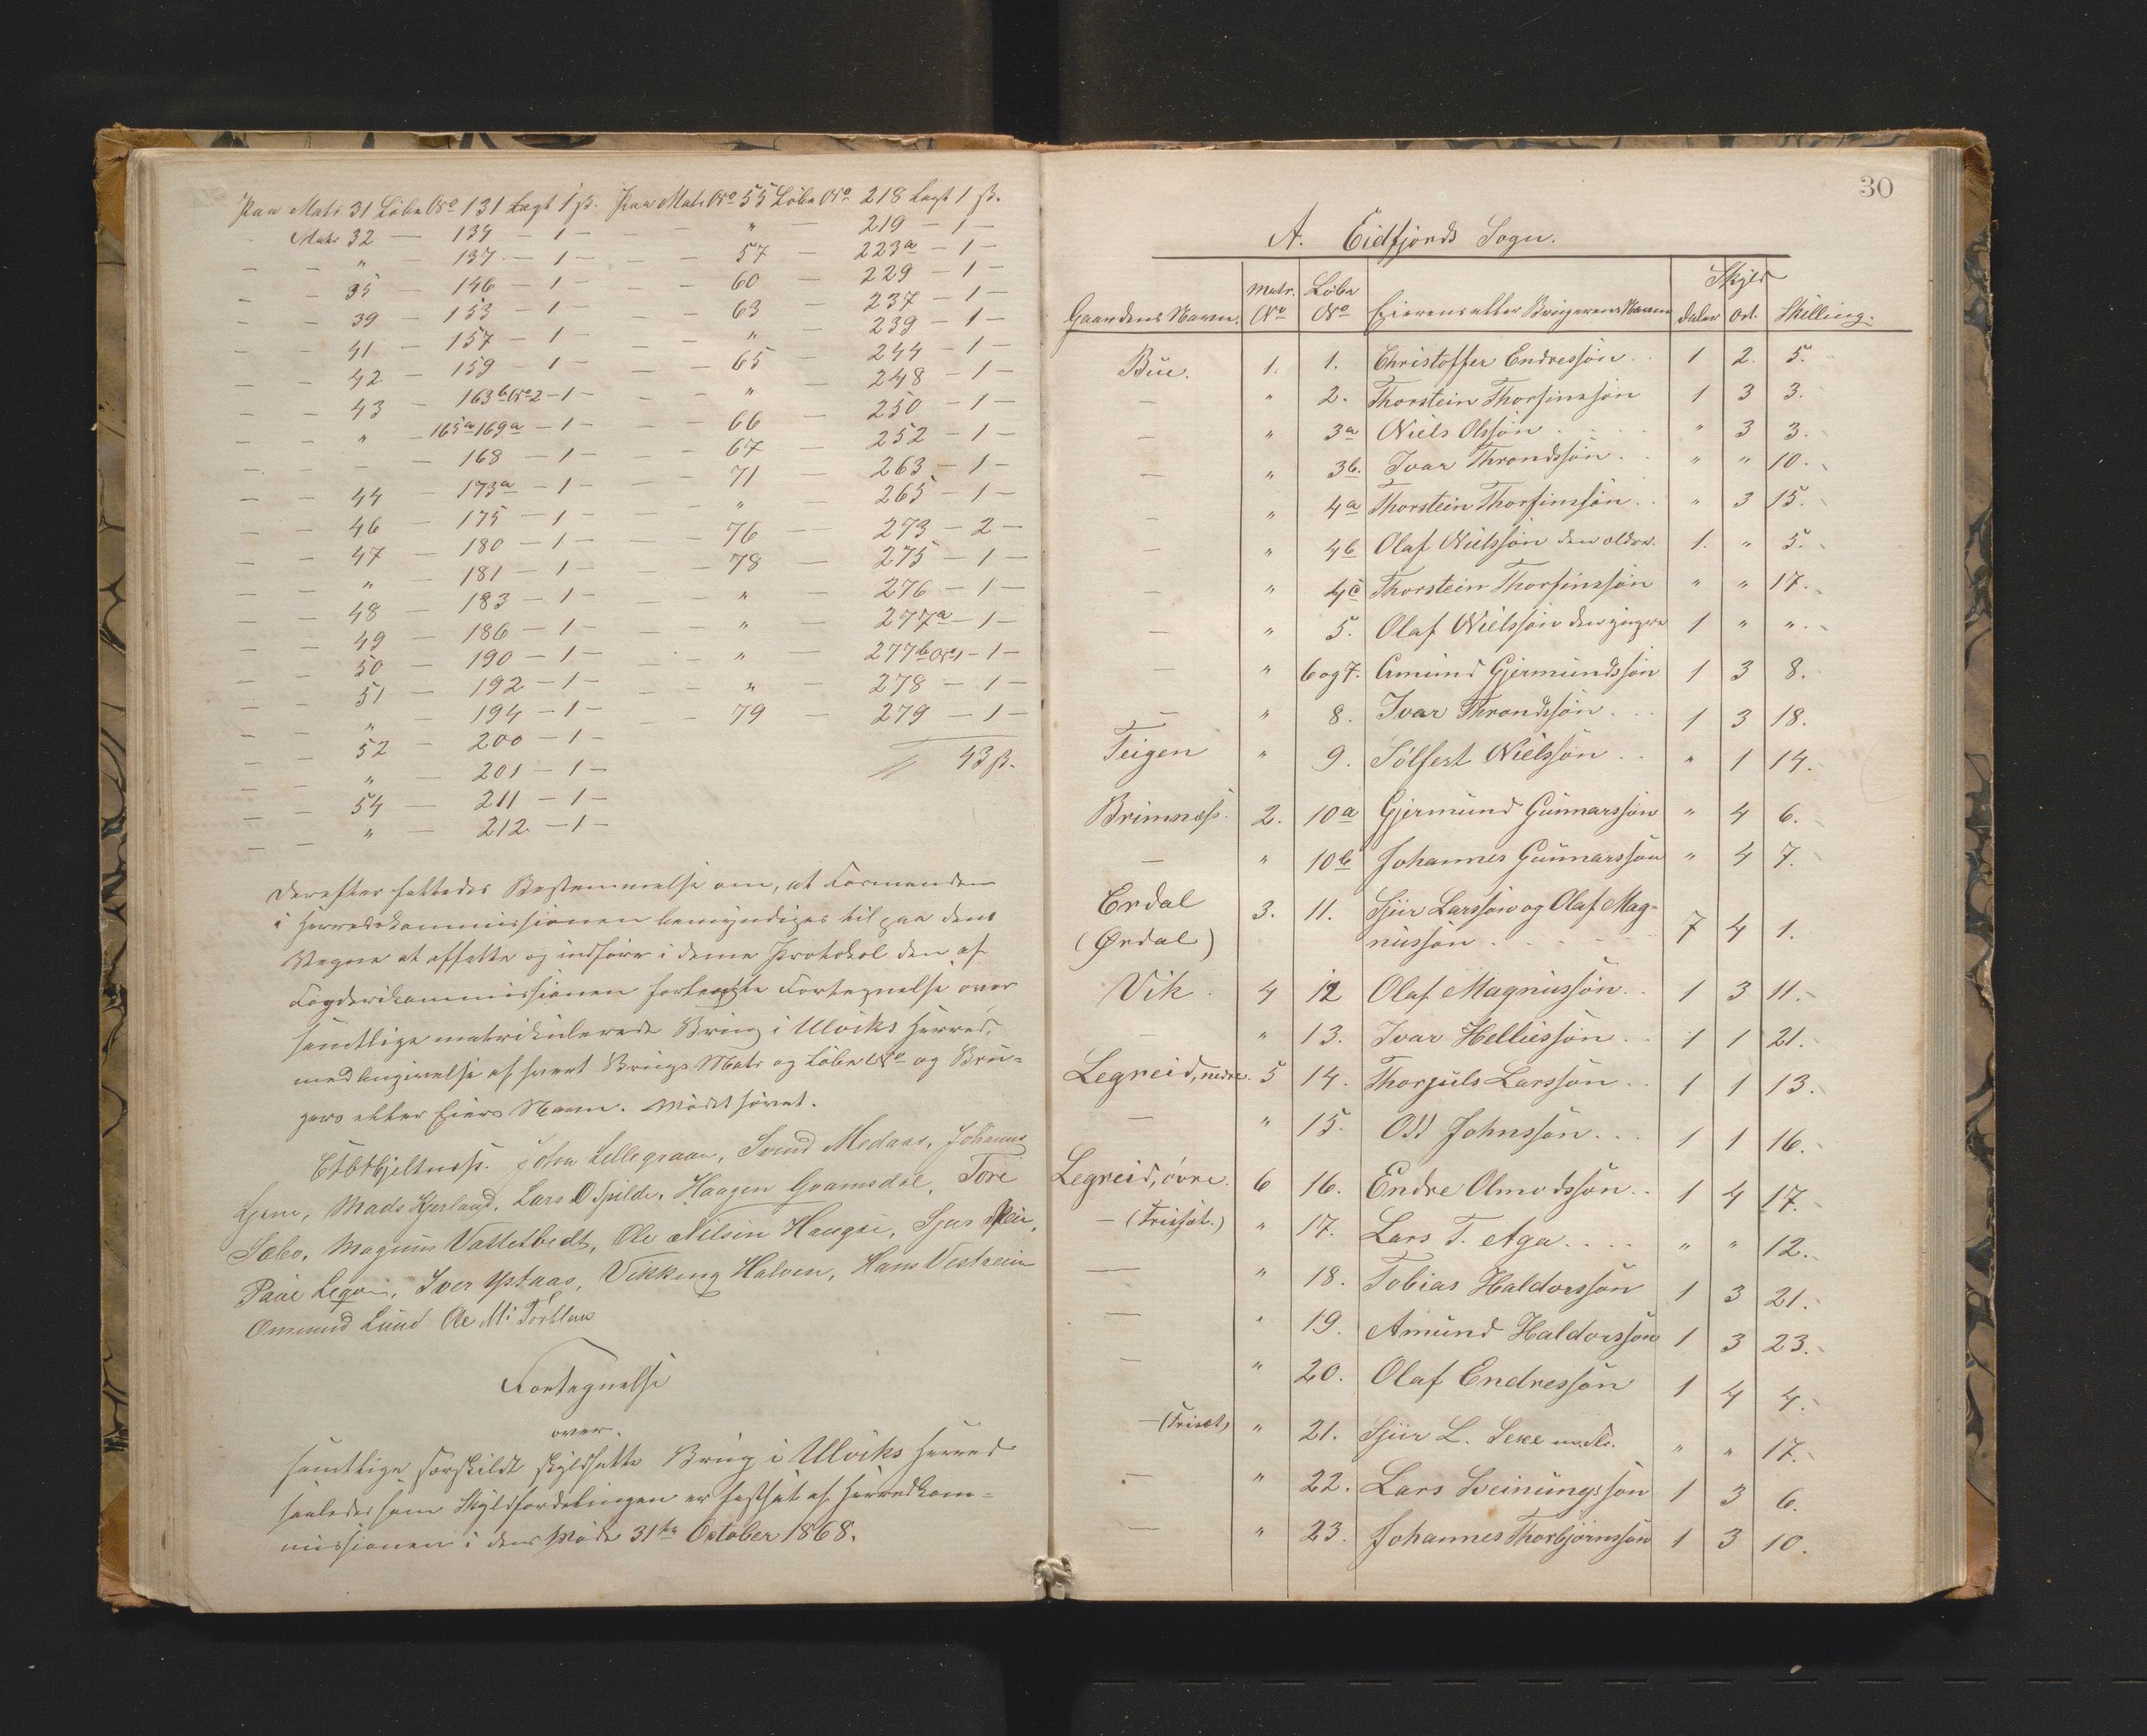 Paa Matr. 31 Löbe No 131 lagt 1 ß. Paa Matr No 55 Löbe No 218 lagt 1 ß.
Matr 32 — 134 — 1 — — " — 219 — 1 —
— — " — 137 — 1 — — — 57 — 223a — 1 —
— — 35 — 146 — 1 — — — 60 — 229 — 1 —
— — 39 — 153 — 1 — — — 63 — 237 — 1 —
— — 41 — 157 — 1 — — — " — 239 — 1 —
— — 42 — 159 — 1 — — — 65 — 244 — 1 —
— — 43 — 163b No 2 — 1 — — — " — 248 — 1 —
— — " — 165a 169a — 1 — — — 66 — 250 — 1 —
— — — 168 — 1 — — — 67 — 252 — 1 —
— — 44 — 173a — 1 — — — 71 — 263 — 1 —
— — 46 — 175 — 1 — — — " — 265 — 1 —
— — 47 — 180 — 1 — — — 76 — 273 — 2 —
— — " — 181 — 1 — — — 78 — 275 — 1 —
— — 48 — 183 — 1 — — — " — 276 — 1 —
— — 49 — 186 — 1 — — — " — 277a — 1 —
— — 50 — 190 — 1 — — — " — 277b No 1 — 1 —
— — 51 — 192 — 1 — — — " — 278 — 1 —
— — " — 194 — 1 — — — 79 — 279 — 1 —
— — 52 — 200 — 1 —
— — " — 201 — 1 — 43 ß.
— — 54 — 211 — 1 —
— — " — 212 — 1 —
Derefter fattedes Bestemmelse om, at Formanden
i Herredskommissionen bemyndiges til paa dens
Vegne at affatte og indföre i denne Protokol den af
Fogderikommissionen forlangte Fortegnelse over
samtlige matrikulerede Brug i Ulviks Herred,
med Angivelse af hvert Brugs Matr og Löbe No og Bru-
gers eller Eiers Navn. Mödet hævet.
John Lellegraven, Svend Medaas, Johannes
Ljone, Mads Kjerland, Lars O Spilde, Haagen Gramsdal, Tore
Sæbo, Magnus Vattetvedt, Ole Nilsen Haugse, Sjur
Paul Legre, Iver Ystaas, Vikking Halven, Hans Vestrein
Ommund Lund Ole M:
Fortegnelse
over
samtlige særskildt skyldsatte Brug i Ulviks Herred
saaledes som Skyldfordelingen er fastsat af Herredskom-
missionen i dens Möde 31te October 1868.
30
A. Eidfjords Sogn.
Gaardens Navn. Matr. No Löbe No Eierens eller Brugerens Navn Skyld Daler Ort. Skilling.
Bue. 1. 1. Christoffer Endressön 1 2. 5.
— " 2. Thorstein Thorfinssön 1 3 3.
— " 3a Niels Olssön " 3 3.
— " 3b. Ivar Throndssön " " 10.
— " 4a Thorstein Thorfinssön " 3 15.
— " 4b Olaf Nielssön den ældre. 1. " 5.
— " 4c Thorstein Thorfinssön " " 17.
— " 5. Olaf Nielssön den yngre 1 " ".
— " 6 og 7. Amund Gjermundssön 1 3 8.
— " 8. Ivar Throndssön 1 3 18.
Teigen " 9. Sölfest Nielssön " 1 14.
Brimnæss. 2. 10a Gjermund Gunnarssön " 4 6.
— " 10b Johannes Gunnarssön " 4 7.
Erdal 3. 11. Sjur Larssön og Olaf Mag-
(Ørdal) nussön 7 4 1.
Vik. 4 12 Olaf Magnussön 1 3 11.
— " 13. Ivar Helliessön 1 1 21.
Legreid, nedre. 5 14. Thorjuls Larssön 1 1 13.
— " 15. Odd Johnssön 1 1 16.
Legreid, övre. 6 16. Endre Olmodssön 1 4 17.
— (Frisæt.) " 17. Lars T. Aga " " 12.
— " 18. Tobias Haldorssön 1 3 21.
— " 19. Amund Haldorssön 1 3 23.
— " 20. Olaf Endressön 1 4 4.
— (Frisæt) " 21. Sjur L. Sexe m. fl. " " 17.
— " 22. Lars Sveinungssön 1 3 6.
— " 23. Johannes Thorbjörnssön 1 3 10.